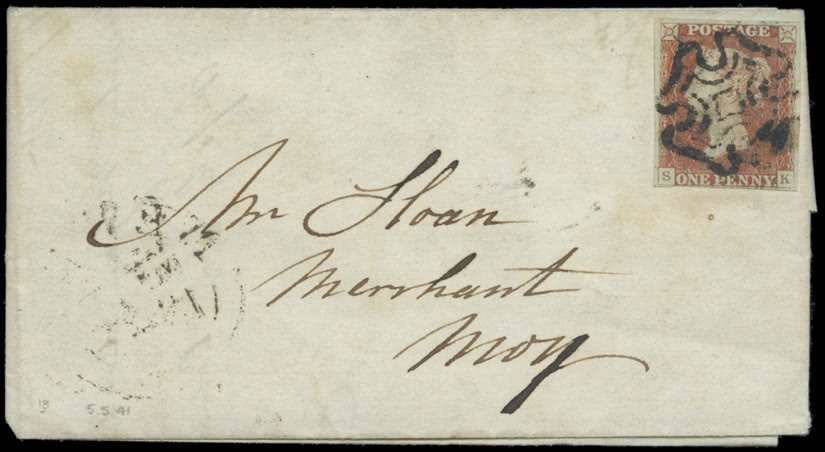 POSTAGE
S K
ONE PENNY.
Mr Sloan
Merchant
Moy
18
5.5.41